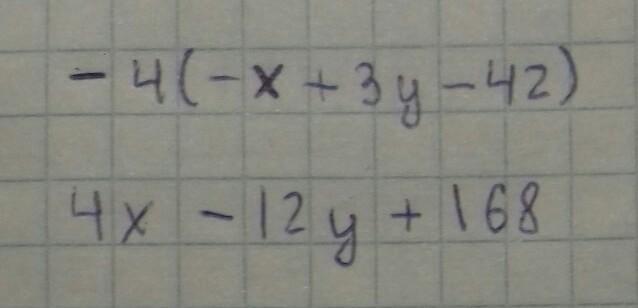 -4(-x+3y-42)
4x-12y+168